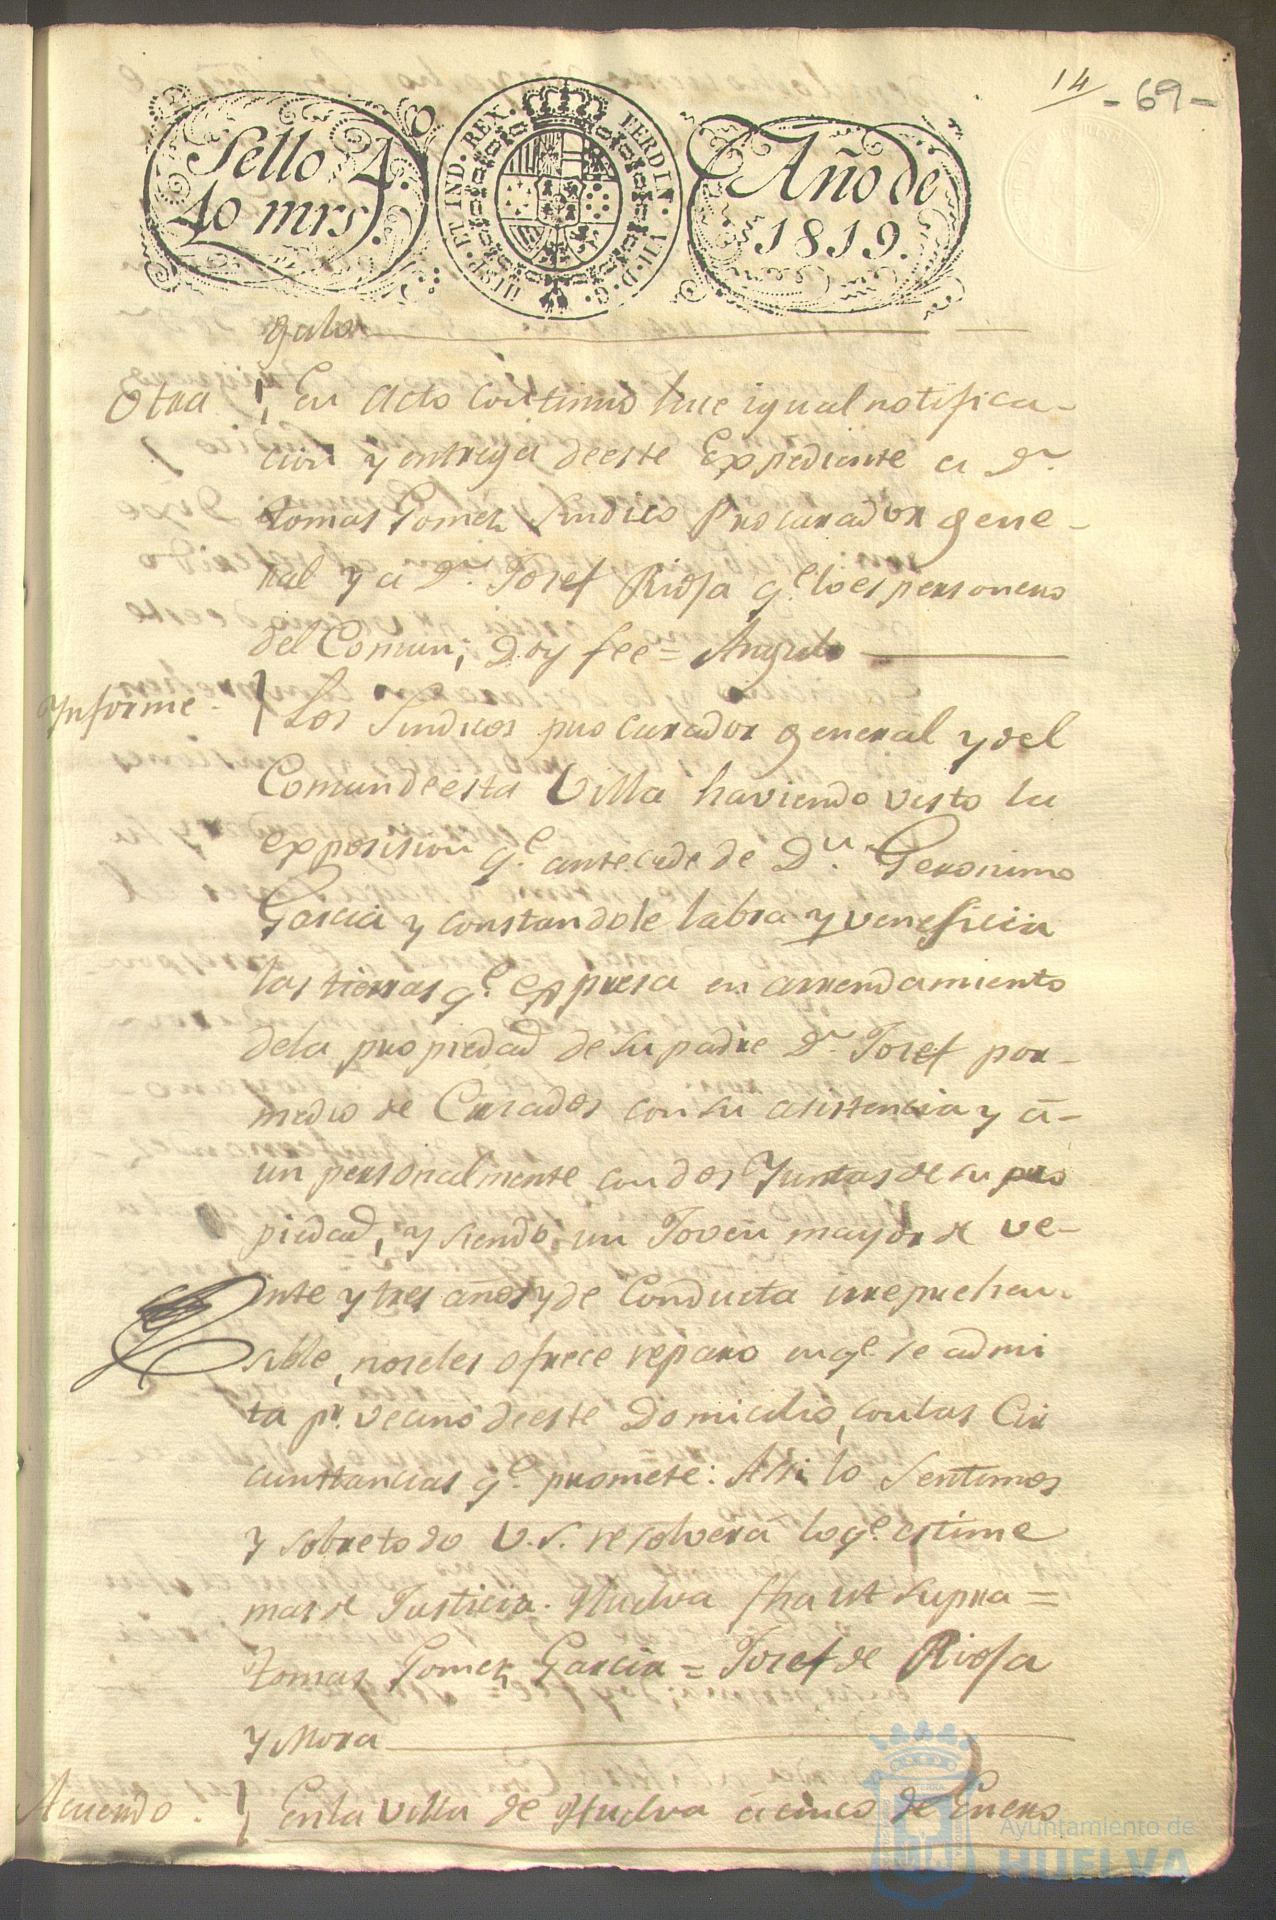 14 -69-
Sello 4.º
40 mrs.
HISP. ET IND. REX. FERDIN. VII. D. G.
Año de
1819.
gulo
Otra En Acto continuo hice igual notifica-
cion y entrega deeste Expediente a Dn.
tomas Gomez Sindico Procurador gene-
ral y a Dn. Josef Riosa qe. lo es personero
del Comun; Doy fee = Angulo
Ynforme. Los Sindicos procurador general y del
Comun deesta Villa haviendo visto la
exposision qe. antecede de Dn. Geronimo
Garcia y constandole labra y veneficia
las tierras qe. expresa en arrendamiento
dela propiedad de su padre Dn. Josef por-
medio de Criados con su asistencia y a-
un personalmente con dos Yuntas de su pro
piedad, y siendo un Joven mayor de ve-
inte y tres años y de Conducta irreprehen-
sible, noseles ofrece reparo en qe. se admi
ta pr. vecino deeste Domicilio, con las Cir
cunstancias qe. promete: Assi lo Sentimos
y sobretodo V.S. resolvera loqe. estime
mas de Justicia. Huelva fha ut supra =
tomas Gomez Garcia = Josef de Riosa
y Mora
Acuerdo. En la villa de Huelva a cinco de Enero
Ayuntamiento de
HUELVA